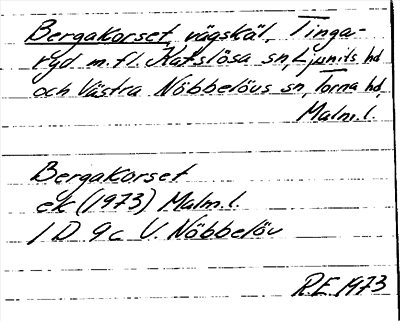 Bergakorset, vägskäl, Tinga-
ryd m.fl. Katslösa sn, Ljunits hd
och Västra Nöbbelövs sn, Torna hd,
Malm.l.
Bergakorset
ek (1973) Malm.l.
1 D 9c V. Nöbbelöv
R.E. 1973